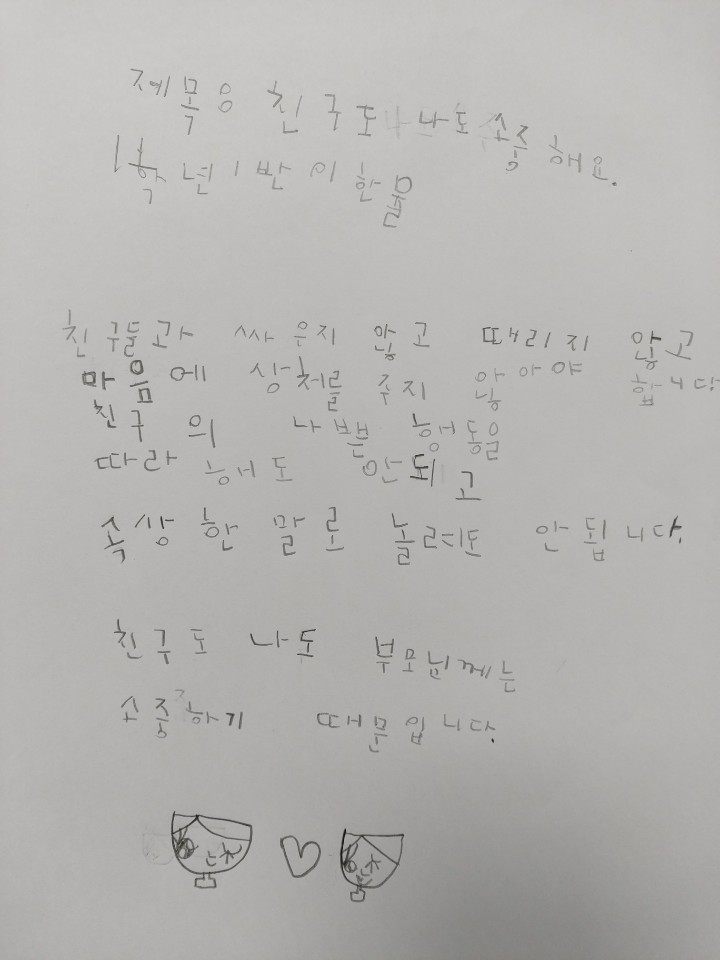 제목응 친구도 나도 소중해요.
1학년 1반 이한물
친구들과 싸우지 않고 때리지 않고
마음에 상처를 주지 않아야 합니다
친구의 나쁜 행동을
따라해도 안되고
속상한 말로 놀려도 안됩니다.
친구도 나도 부모님께는
소중하기 때문입니다.